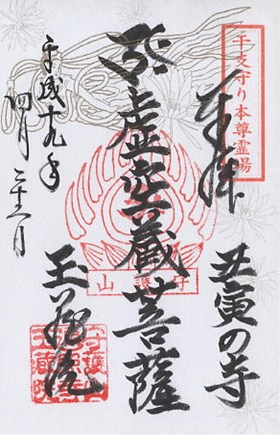 干支守り本尊霊場
奉拝
丑寅の寺
虚空蔵菩薩
守護山
玉蔵院
平成十九年
四月